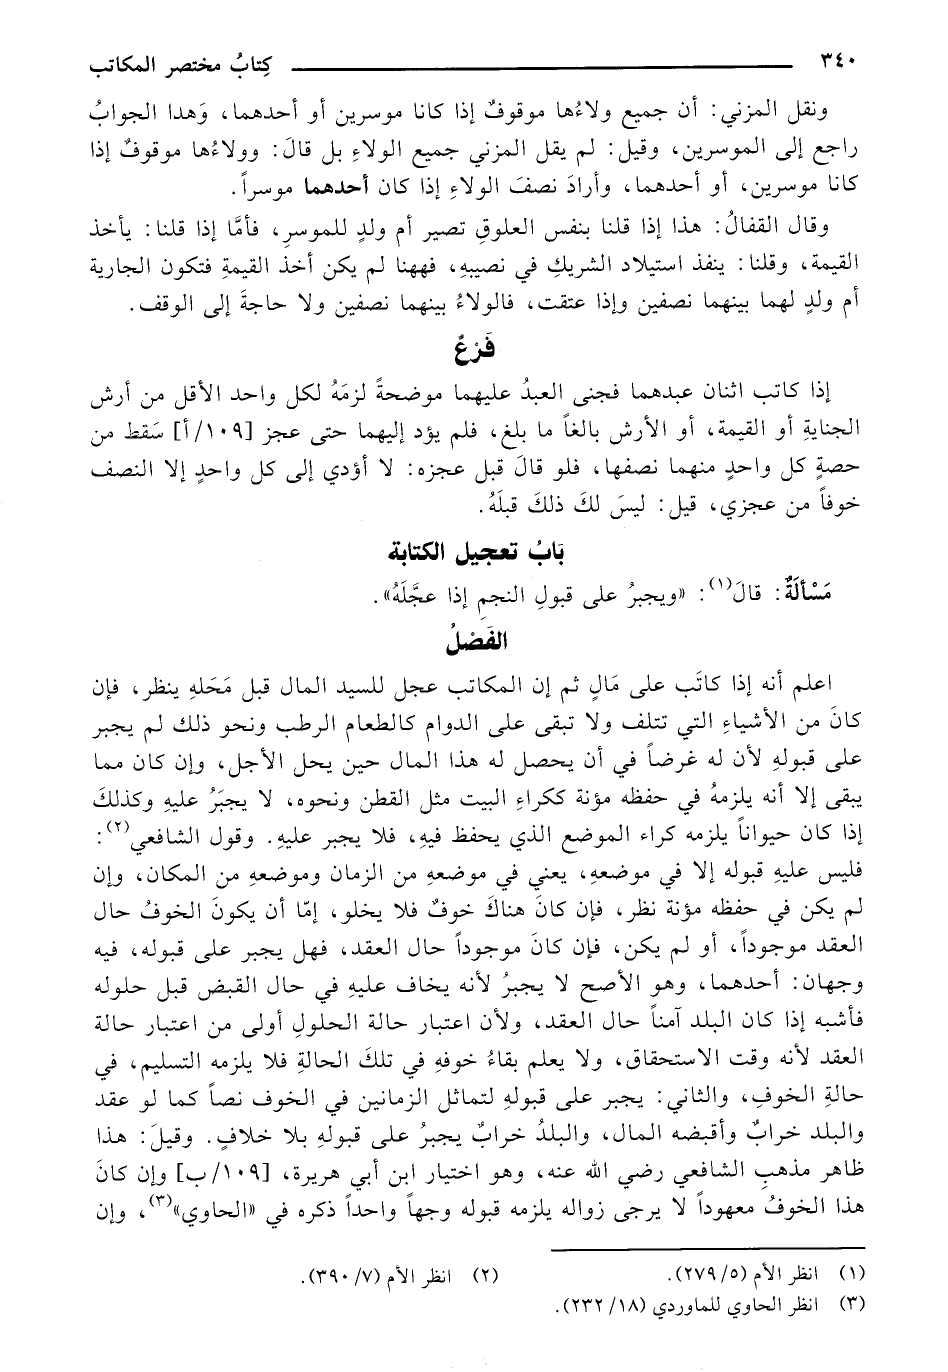 ٣٤٠ كِتابُ مختصر المكاتب
ونقل المزني: أن جميع ولاءُها موقوفٌ إذا كانا موسرين أو أحدهما، وَهدا الجوابُ
راجع إلى الموسرين، وقيل: لم يقل المزني جميع الولاءِ بل قالَ: وولاءُها موقوفٌ إذا
كانا موسرين، أو أحدهما، وأرادَ نصفَ الولاءِ إذا كان أحدهما موسراً.
وقال القفالُ: هذا إذا قلنا بنفس العلوقِ تصير أم ولدٍ للموسرِ، فأمَّا إذا قلنا: يأخذ
القيمة، وقلنا: ينفذ استيلاد الشريكِ في نصيبهِ، فههنا لم يكن أخذ القيمةِ فتكون الجارية
أم ولدٍ لهما بينهما نصفين وإذا عتقت، فالولاءُ بينهما نصفين ولا حاجةَ إلى الوقف.
فَرْعٌ
إذا كاتب اثنان عبدهما فجنى العبدُ عليهما موضحةً لزمَهُ لكل واحد الأقل من أرش
الجنايةِ أو القيمة، أو الأرش بالغاً ما بلغ، فلم يؤد إليهما حتى عجز [١٠٩/أ] سَقط من
حصةِ كل واحدٍ منهما نصفها، فلو قالَ قبل عجزه: لا أؤدي إلى كل واحدٍ إلا النصف
خوفاً من عجزي، قيل: ليسَ لكَ ذلكَ قبلَهُ.
بَابُ تعجيل الكتابة
مَسْألَةٌ: قالَ(١): «ويجبرُ على قبولِ النجمِ إذا عجَّلَهُ».
الفَصْلُ
اعلم أنه إذا كاتَب على مَالٍ ثم إن المكاتب عجل للسيد المال قبل مَحَلهِ ينظر، فإن
كانَ من الأشياءِ التي تتلف ولا تبقى على الدوام كالطعام الرطب ونحو ذلك لم يجبر
على قبولهِ لأن له غرضاً في أن يحصل له هذا المال حين يحل الأجل، وإن كان مما
يبقى إلا أنه يلزمهُ في حفظه مؤنة ككراءِ البيت مثل القطن ونحوه، لا يجبَرُ عليهِ وكذلكَ
إذا كان حيواناً يلزمه كراء الموضع الذي يحفظ فيهِ، فلا يجبر عليهِ. وقول الشافعي(٢):
فليس عليهِ قبوله إلا في موضعهِ، يعني في موضعهِ من الزمان وموضعهِ من المكان، وإن
لم يكن في حفظه مؤنة نظر، فإن كانَ هناكَ خوفٌ فلا يخلو، إمّا أن يكونَ الخوفُ حال
العقد موجوداً، أو لم يكن، فإن كانَ موجوداً حال العقد، فهل يجبر على قبوله، فيه
وجهان: أحدهما، وهو الأصح لا يجبرُ لأنه يخاف عليهِ في حال القبض قبل حلوله
فأشبه إذا كان البلد آمناً حال العقد، ولأن اعتبار حالة الحلولِ أولى من اعتبار حالة
العقد لأنه وقت الاستحقاق، ولا يعلم بقاءُ خوفهِ في تلكَ الحالةِ فلا يلزمه التسليم، في
حالةِ الخوفِ، والثاني: يجبر على قبولهِ لتماثل الزمانين في الخوف نصاً كما لو عقد
والبلد خرابٌ وأقبضه المال، والبلدُ خرابٌ يجبرُ على قبولهِ بلا خلافٍ. وقيلَ: هذا
ظاهر مذهبِ الشافعي رضي الله عنه، وهو اختيار ابن أبي هريرة، [١٠٩/ب] وإن كانَ
هذا الخوفُ معهوداً لا يرجى زواله يلزمه قبوله وجهاً واحداً ذكره في «الحاوي»(٣)، وإن
(١) انظر الأم (٢٧٩/٥). (٢) انظر الأم (٣٩٠/٧).
(٣) انظر الحاوي للماوردي (٢٣٢/١٨).